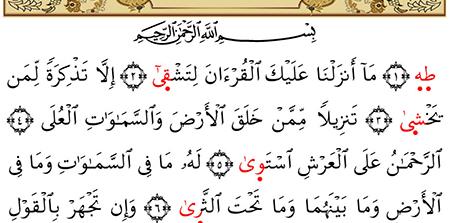 بِسْمِ ٱللَّهِ ٱلرَّحْمَٰنِ ٱلرَّحِيمِ
طه ﴿١﴾ مَآ أَنزَلْنَا عَلَيْكَ ٱلْقُرْءَانَ لِتَشْقَىٰٓ ﴿٢﴾ إِلَّا تَذْكِرَةً لِّمَن
يَخْشَىٰ ﴿٣﴾ تَنزِيلًا مِّمَّنْ خَلَقَ ٱلْأَرْضَ وَٱلسَّمَٰوَٰتِ ٱلْعُلَى ﴿٤﴾
ٱلرَّحْمَٰنُ عَلَى ٱلْعَرْشِ ٱسْتَوَىٰ ﴿٥﴾ لَهُۥ مَا فِى ٱلسَّمَٰوَٰتِ وَمَا فِى
ٱلْأَرْضِ وَمَا بَيْنَهُمَا وَمَا تَحْتَ ٱلثَّرَىٰ ﴿٦﴾ وَإِن تَجْهَرْ بِٱلْقَوْلِ